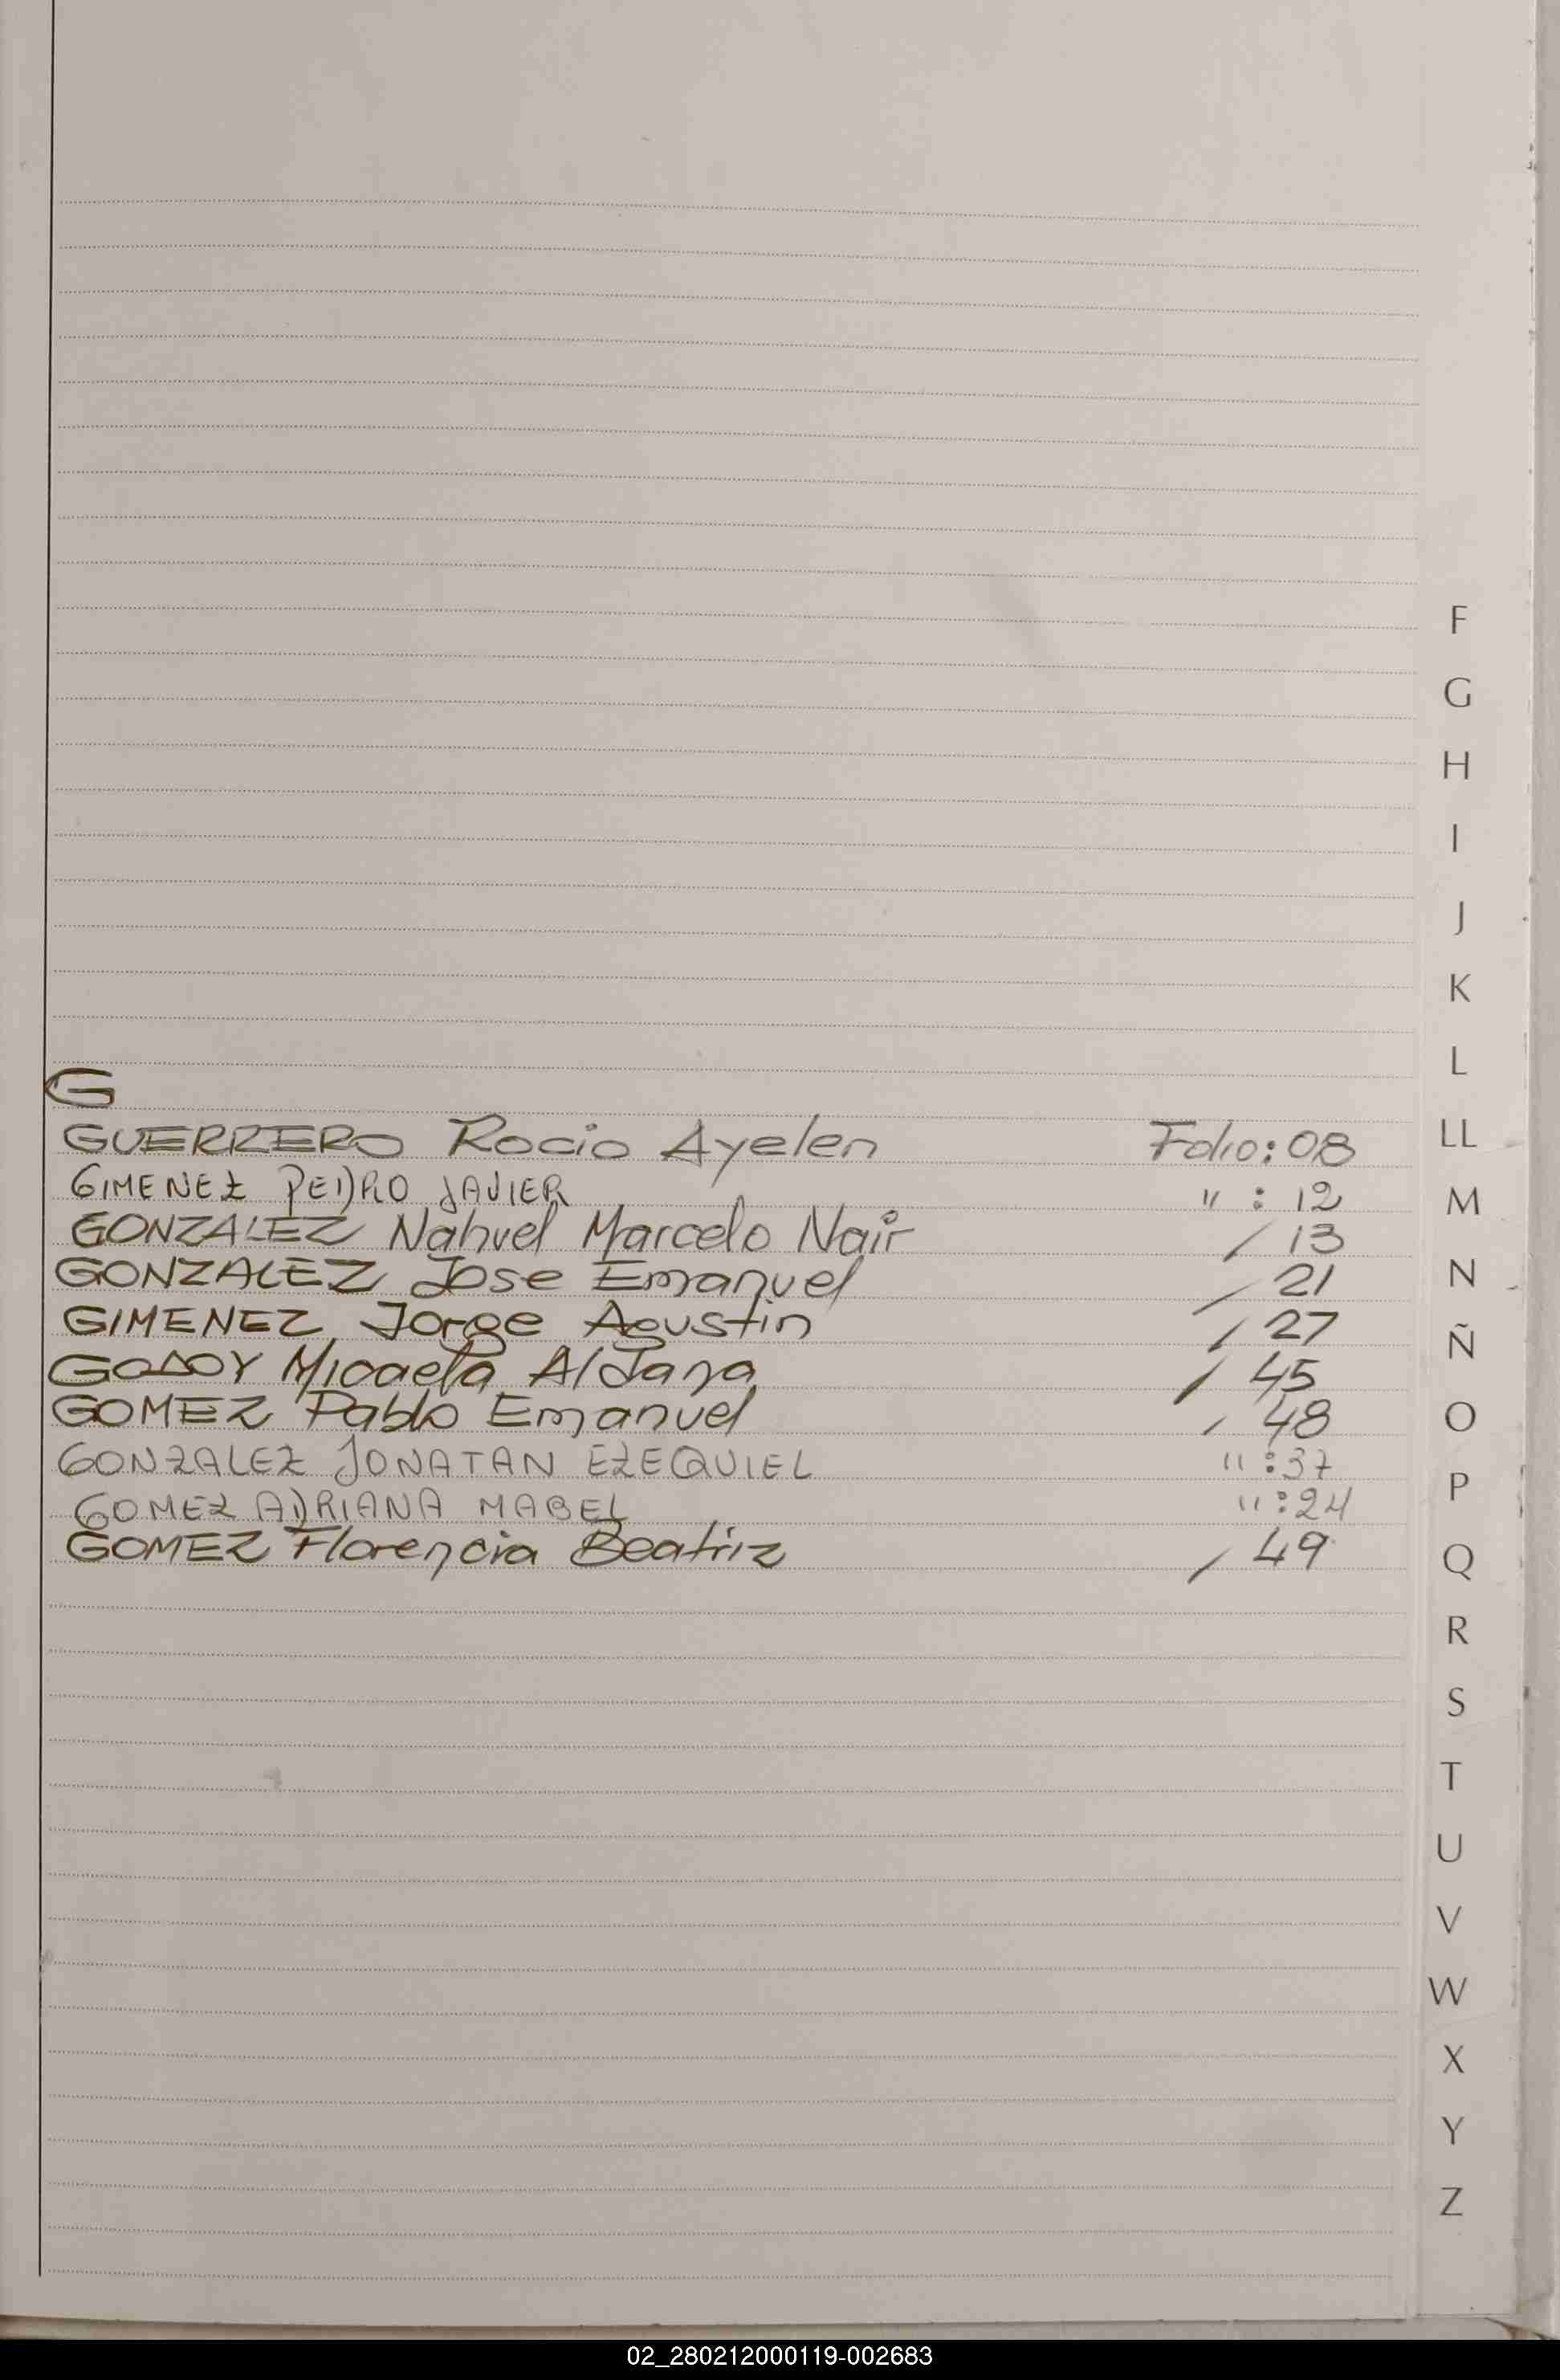 F
G
H
I
J
K
L
G
GUERRERO Rocio Ayelen Folio: 08
LL
GIMENEZ PEDRO JAVIER " : 12
M
GONZALEZ Nahuel Marcelo Nair / 13
GONZALEZ Jose Emanuel / 21
N
GIMENEZ, Jorge Agustin / 27
Ñ
GODOY Micaela Aldana / 45
GOMEZ Pablo Emanuel / 48
O
GONZALEZ JONATAN EZEQUIEL " : 37
P
GOMEZ ADRIANA MABEL " : 24
GOMEZ Florencia Beatriz / 49
Q
R
S
T
U
V
W
X
Y
Z
02_280212000119-002683